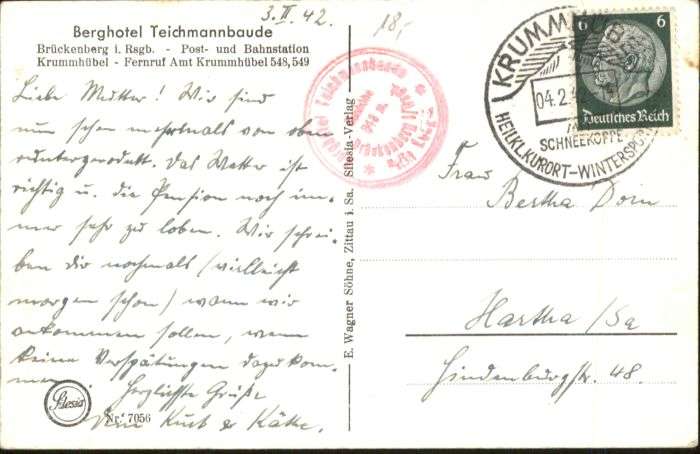 3.II.42.
18,-
Berghotel Teichmannbaude
Brückenberg i. Rsgb. - Post- und Bahnstation
Krummhübel - Fernruf Amt Krummhübel 548, 549
Liebe Mutter! Wir sind
nun schon mehrmals von oben
runtergerodelt. Das Wetter ist
richtig u. die Pension noch im-
mer sehr zu loben. Wir schrei-
ben dir nochmals (vielleicht
morgen schon) wann wir
ankommen sollen, wenn
keine Verspätungen dazu kom-
men. Herzlichste Grüße
Dein Kurt & Käthe.
Silesia
Nr. 7056
E. Wagner Söhne, Zittau i. Sa. Silesia-Verlag
Berghotel Teichmannbaude
Brückenberg
KRUMMHÜBEL
04.2.
SCHNEEKOPPE
HEILKLKURORT-WINTERSPORT
6 6
Deutsches Reich
Frau
Bertha Dorn
Hartha /Sa
Hindenburgstr. 48.